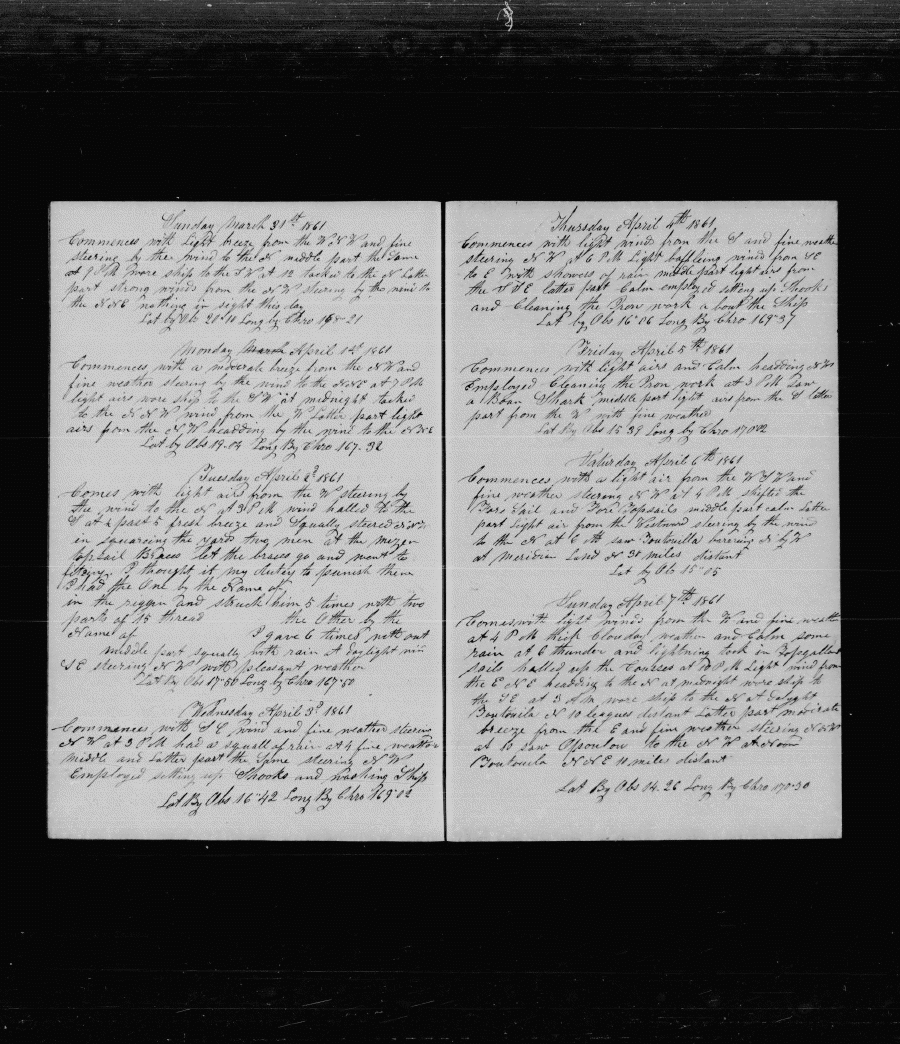 Sunday March 31th 1861
Commences with Light breeze from the W N W and fine
steering by the wind to the N middle part the Same
at 9 P M wore ship to the S W at 12 tacked to the N Latter
part strong winds from the N W steering by the wind to
the N N E nothing in sight this day
Lat by Obs 20-10 Long by Chro 168-21
Monday March April 1st 1861
Commences with a moderate breeze from the N W and
fine weather steering by the wind to the N N E at 7 P M
light airs wore ship to the S W at midnight tacked
to the N N W wind from the W Latter part light
airs from the N W headding by the wind to the N N E
Lat by Obs 19-04 Long By Chro 167-32
Tuesday April 2d 1861
Comes with light airs from the W steering by
the wind to the N at 3 P M wind halled to the
S at ½ past 5 fresh breeze and Squally steered N N W
in squearing the yards two men at the mezen
topsail Braces let the braces go and went to
I thought it my dutey to punish them
I had the One by the Name of
in the riggen and struck him 5 times with two
parts of 15 thread the Other by the
Name of I gave 6 times with out
middle part squally with rain at Daylight win
S E steering N W with pleasant weather
Lat By Obs 17-50 Long by Chro 167-50
Wednesday April 3d 1861
Commences with S E wind and fine weather steering
N W at 3 P M had a squall of rain at 4 fine weather
middle and Latter part the Same steering N W
Employed setting up Shooks and washing Ship
Lat By Obs 16-42 Long By Chro 169-02
Thursday April 4th 1861
Commences with light wind from the S and fine weather
steering N W At 6 P M Light baffleing winds from S E
to E with showers of rain middle part light airs from
the S S E latter part Calm employed setting up Shooks
and Cleaning the Iron work a bout the Ship
Lat by Obs 16-06 Long By Chro 169-37
Friday April 5th 1861
Commences with light airs and Calm headding N W
Employed Cleaning the Iron work at 3 P M Saw
a Boan Shark middle part light airs from the S latter
part from the W with fine weather
Lat By Obs 15-39 Long by Chro 170-02
Saturday April 6th 1861
Commences with a light air from the W S W and
fine weather steerong N W At 4 P M shifted the
Fore Sail and Fore Topsails middle part calm Latter
part Light air from the Westward steering by the wind
to the N at 6 A M saw Boutouilla barering N by W
at meridian Laid N 35 miles distant
Lat by Ob 15-05
Sunday April 7th 1861
Comes with light winds from the W and fine weather
at 4 P M thick Clouday weather and Calm some
rain at 6 thunder and lightning took in Topgallant
sails halled up the Courses at 10 P M Light wind from
the E N E headding to the N at midnight wore ship to
the S E at 3 A M wore ship to the N at Daylight
Boutouila N 10 leagues distant Latter part moderate
breeze from the E and fine weather steering N N W
at 10 Saw to the N W at Noon
Boutouila N N E 10 miles distant
Lat By Obs 14-26 Long By Chro 170-30